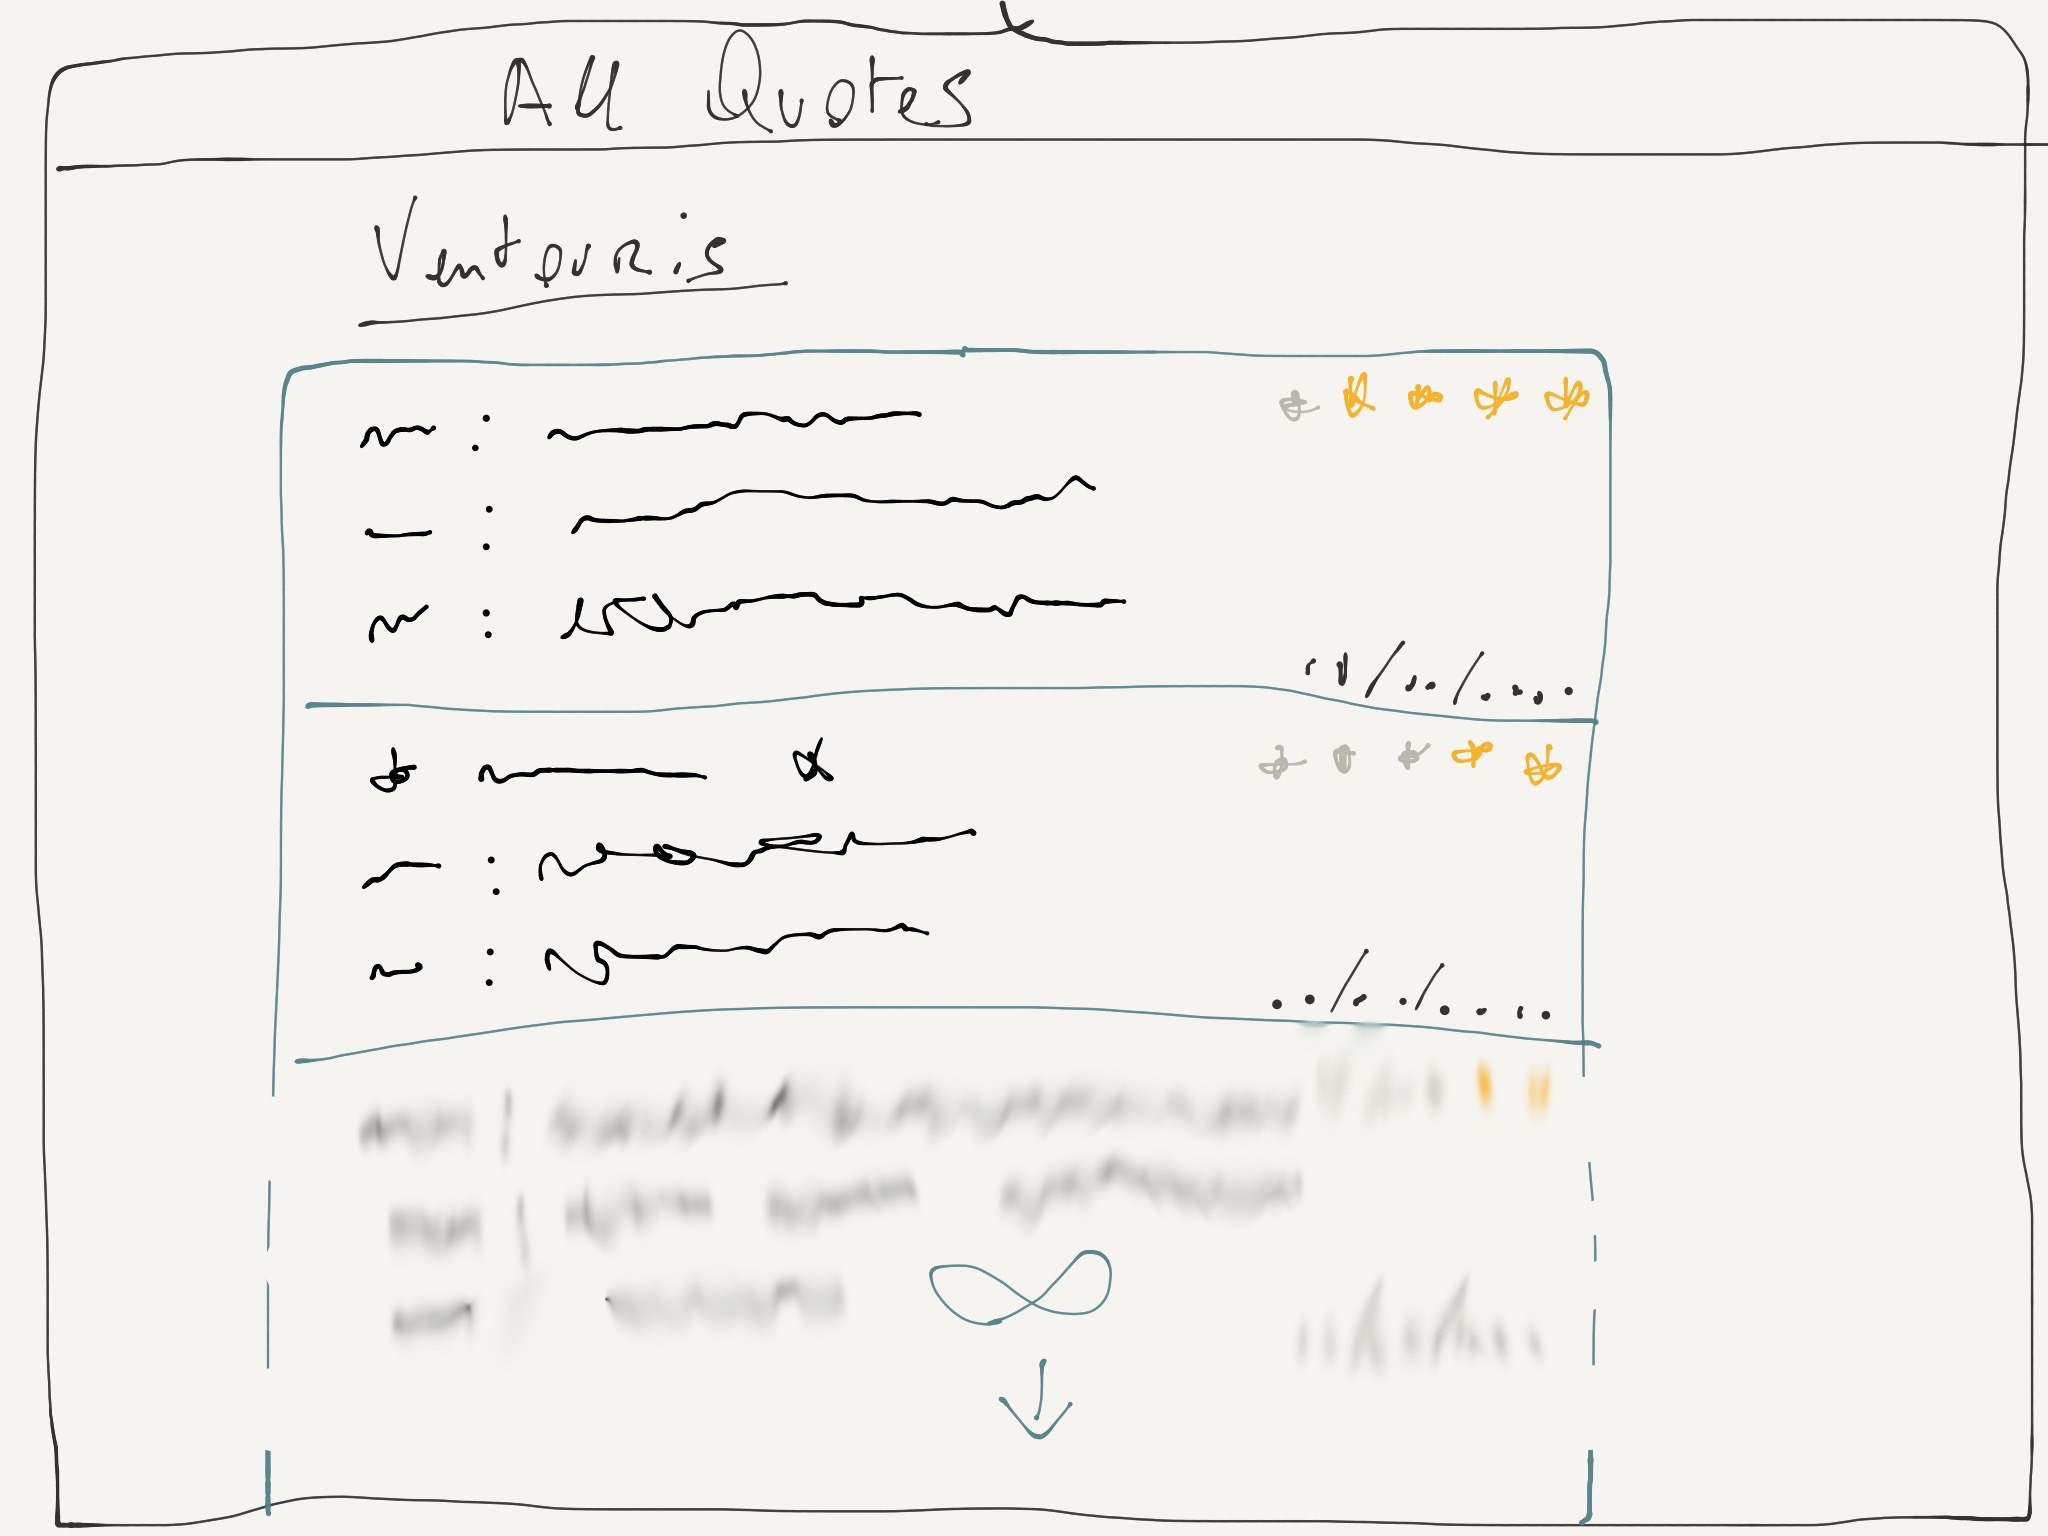 All Quotes
Ventouris